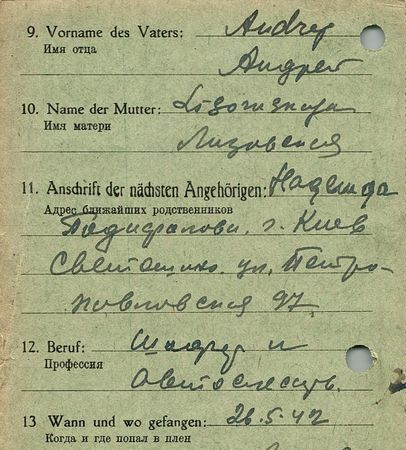 9. Vorname des Vaters: Andrey
Имя отца
Андрей
10. Name der Mutter:
Имя матери
Лизовская
11. Anschrift der nächsten Angehörigen: Надежда
Адрес ближайших родственников
г. Киев
ул. Петро-
павловская 97
12. Beruf: и
Профессия
Автослесарь
13 Wann und wo gefangen: 26.5.42
Когда и где попал в плен